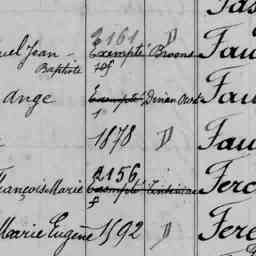 3161 D
uel Jean- Exempté Broons Fau
Baptiste
Ange Exempté Dinan Ouest Fau
1878 D Fau
2156
François Marie Exempté Ferc
f
Marie Eugène 1592 D Fere